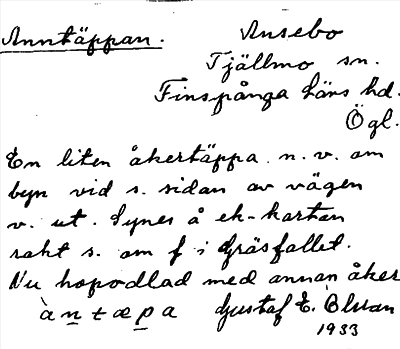 Anntäppan.
Ansebo
Tjällmo sn.
Finspånga läns hd.
Ögl.
En liten åkertäppa n.v. om
byn vid s. sidan av vägen
v. ut. Synes å ek-kartan
rakt s. om f i Gräsfallet.
Nu hopodlad med annan åker
àntæpa Gustaf E. Olsson
1933